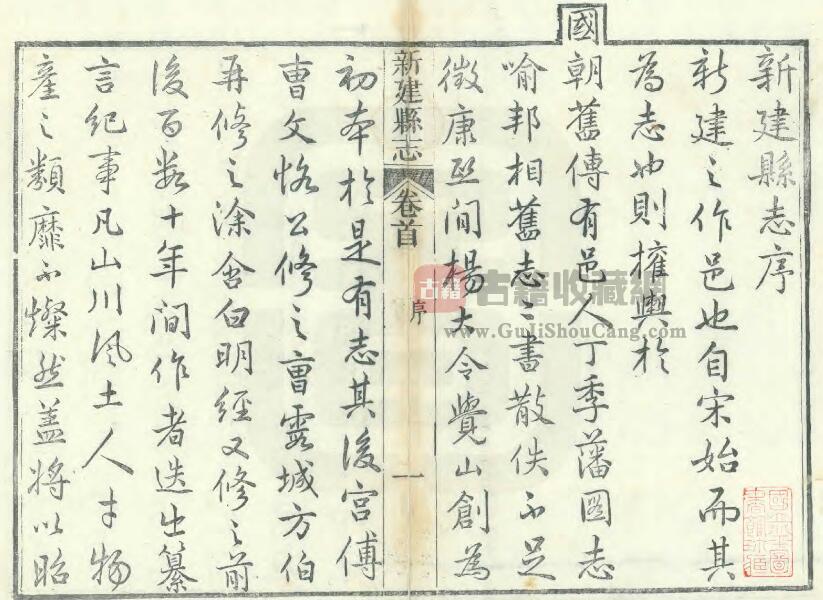 新建縣志序
新建之作邑也自宋始而其
為志也則權輿於
國
朝舊傳有邑人丁季藩圖志
喻邦相舊志二書散佚不足
徵康熙間楊大令覺山創為
新建縣志
卷首
序
一
初本於是有志其後宮傅
曹文恪公修之曹雲城方伯
再修之涂舍白明經又修之前
後百數十年間作者迭出纂
言紀事凡山川風土人才物
產之類靡不燦然蓋將以昭
古籍
古籍收藏網
www.GuJiShouCang.com